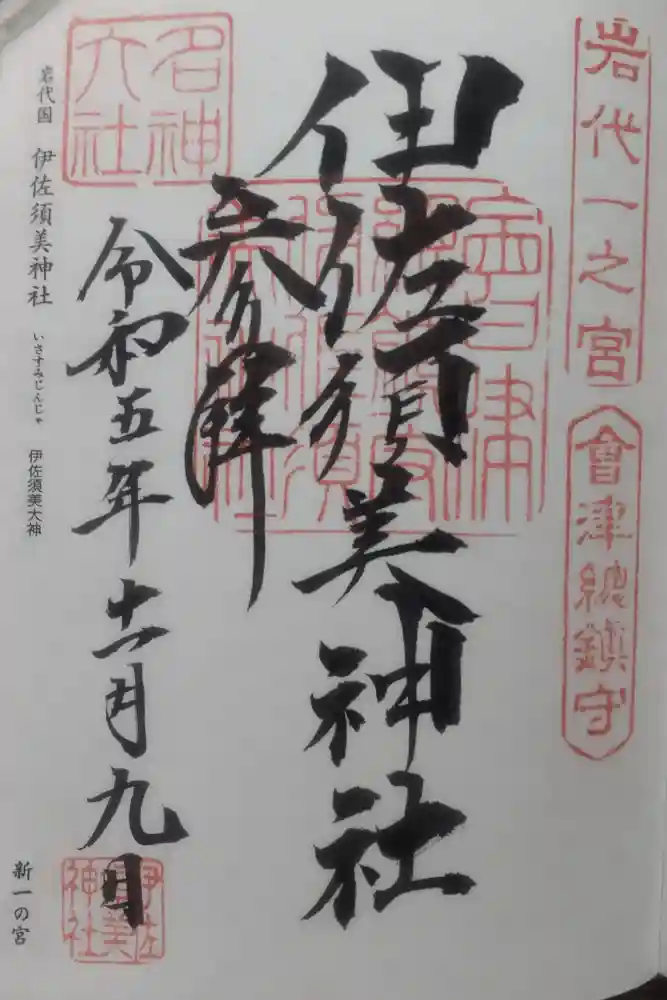 岩代一之宮
會津總鎮守
伊佐須美神社
参拝
令和五年十一月九日
名神
大社
伊佐
須美
神社
岩代国 伊佐須美神社 いさすみじんじゃ 伊佐須美大神
新一の宮